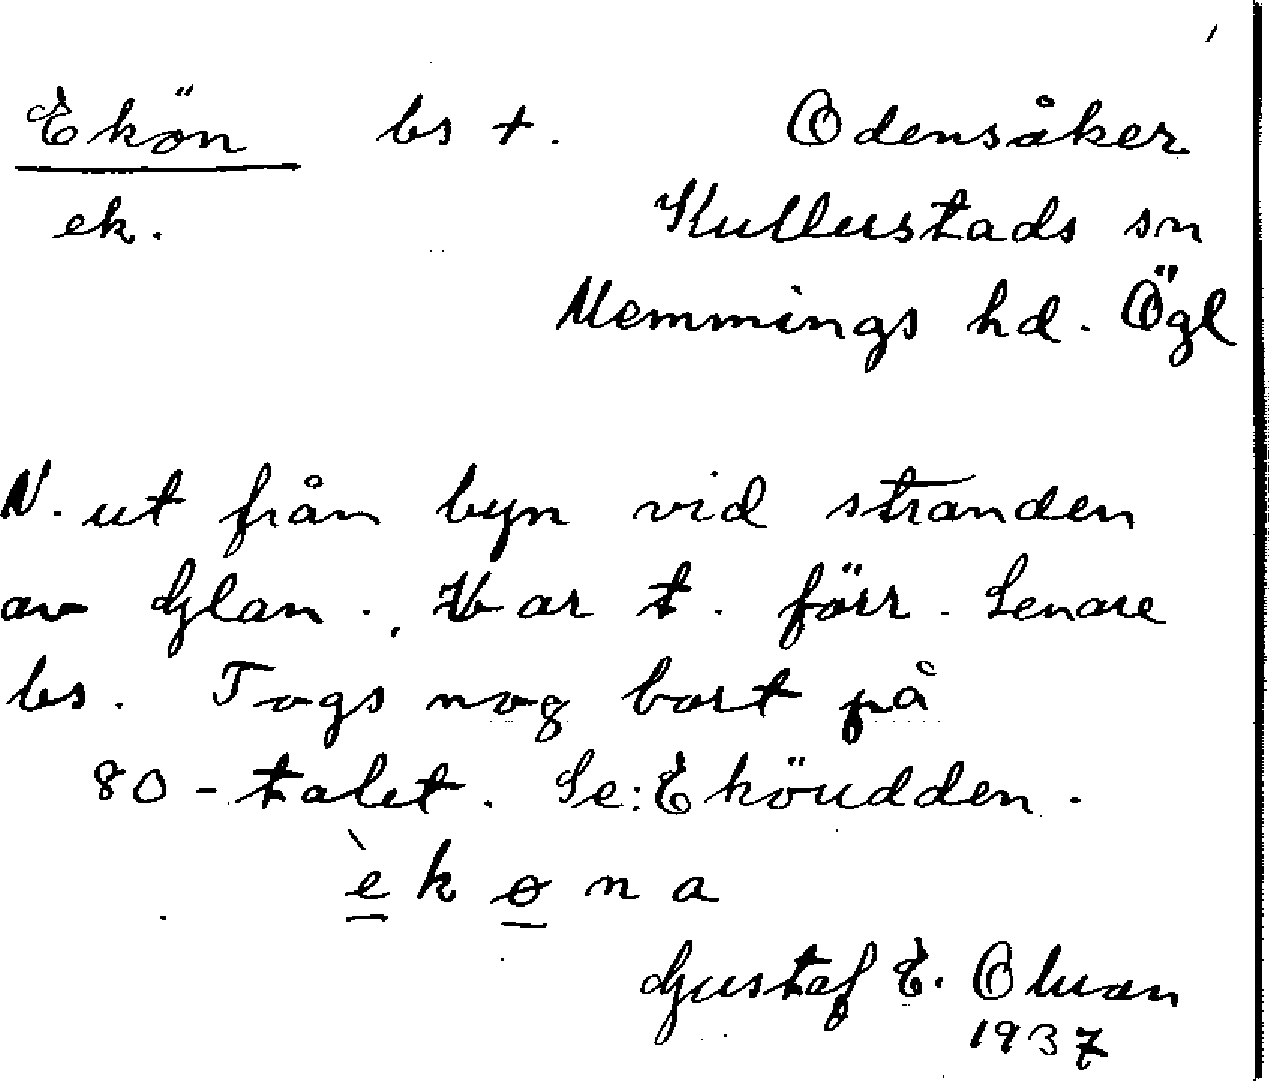 Ekön bs †. Odensåker
ek. Kullerstads sn
Memmings hd. Ögl
N. ut från byn vid stranden
av Glan. Var t. förr. Senare
bs. Togs nog bort på
80-talet. Se: Eköudden.
è k ø n a
Gustaf E.
1937